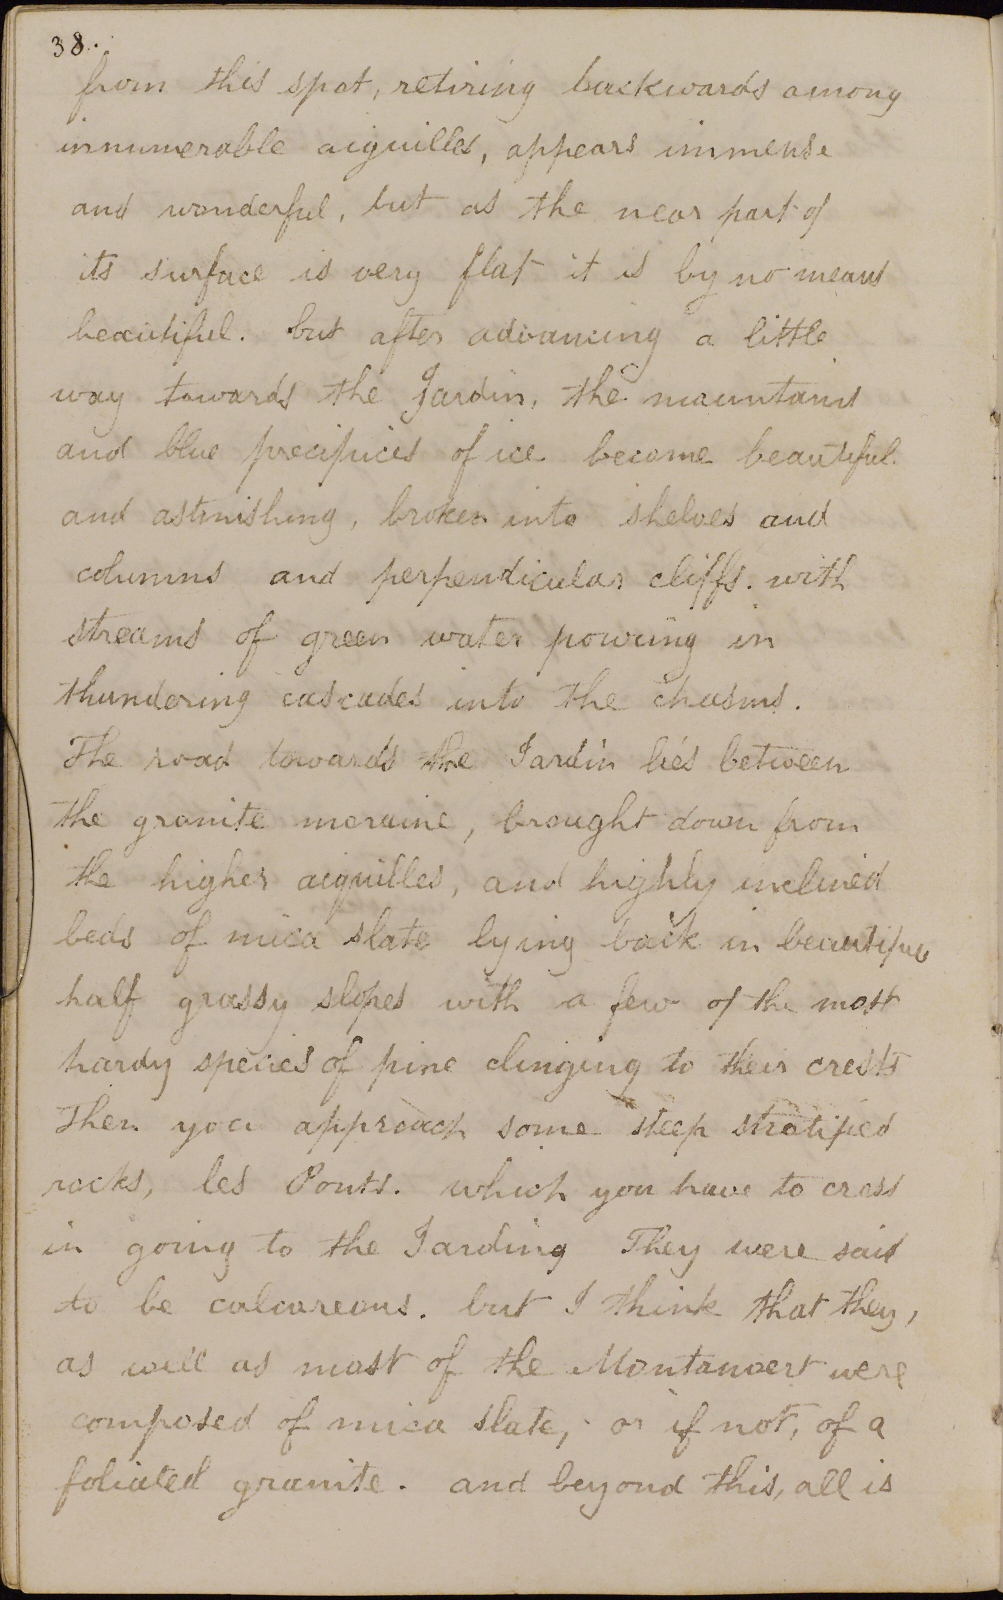 38.
from this spot, retiring backwards among
innumerable aiguilles, appears immense
and wonderful, but as the near part of
its surface is very flat it is by no means
beautiful. but after advancing a little
way towards the Jardin, the mountains
and blue precipices of ice become beautiful
and astonishing, broken into shelves and
columns and perpendicular cliffs. with
streams of green water pouring in
thundering cascades into the chasms.
The road towards the Jardin lies between
the granite moraine, brought down from
the higher aiguilles, and highly inclined
beds of mica slate lying back in beautiful
half grassy slopes with a few of the most
hardy species of pine clinging to their crests
Then you approach some steep stratified
rocks, les Ponts. which you have to cross
in going to the Jarding They were said
to be calcareous. but I think that they,
as well as most of the Montanvert were
composed of mica slate, or if not, of a
foliated granite. and beyond this, all is